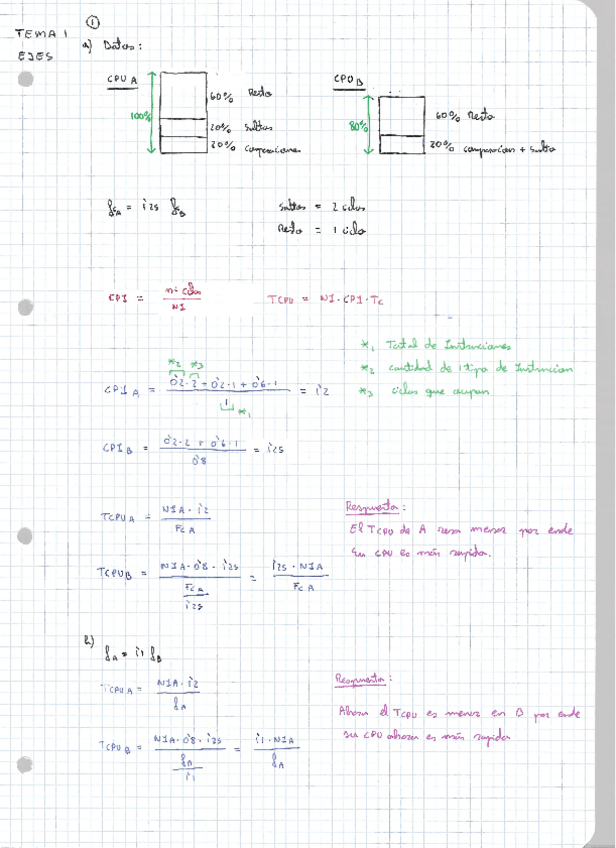 TEMA 1
EJES
①
a) Datos:
CPU A
CPU B
100%
60% Resto
20% saltos
20% comparaciones
80%
60% Resto
20% comparacion + salto
fcA = 1'25 fcB
saltos = 2 ciclos
Resto = 1 ciclo
CPI = nº ciclos / NI
TCPU = NI · CPI · Tc
*1 Total de Instrucciones
*2 cantidad de 1 tipo de Instruccion
*3 ciclos que ocupan
*2 *3
CPI A = 0'2·2 + 0'2·1 + 0'6·1 / 1 = 1'2
*1
CPI B = 0'2·2 + 0'6·1 / 0'8 = 1'25
TCPU A = NIA · 1'2 / FcA
TCPU B = NIA · 0'8 · 1'25 / FcA / 1'25 = 1'25 · NIA / FcA
Respuesta:
El TCPU de A sera menor por ende
su CPU es más rapida.
b)
fA = 1'1 fB
TCPU A = NIA · 1'2 / fA
TCPU B = NIA · 0'8 · 1'25 / fA / 1'1 = 1'1 · NIA / fA
Respuesta:
Ahora el TCPU es menor en B por ende
su CPU ahora es más rapida